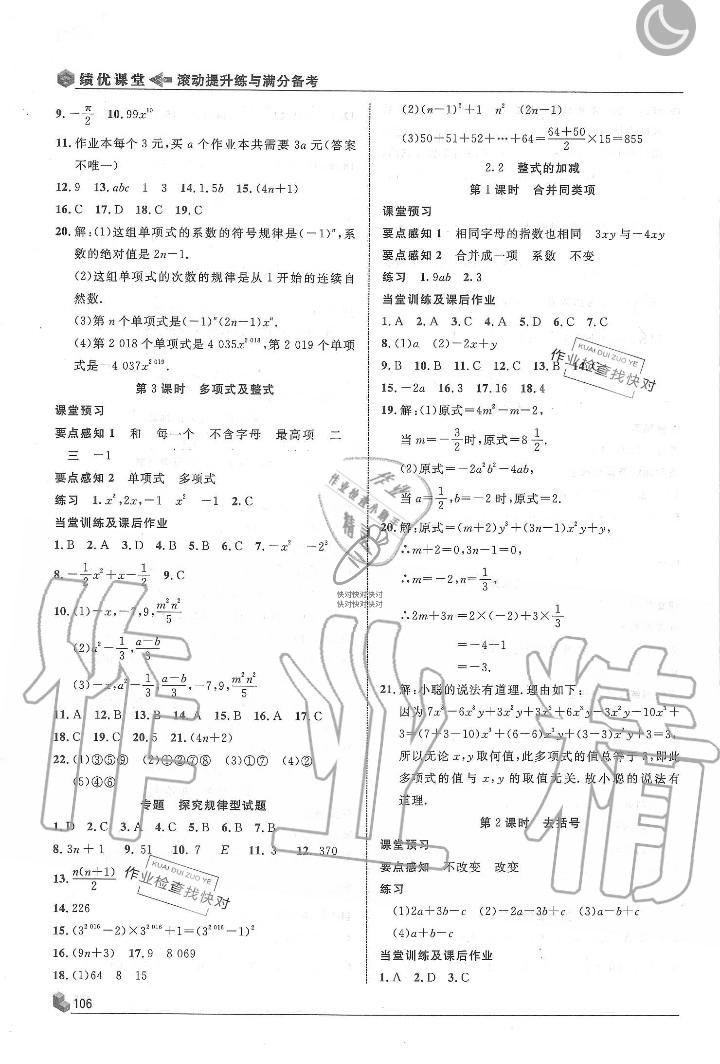 绩优课堂 滚动提升练与满分备考
9.-π/2 10.99x¹⁰
11.作业本每个3元,买a个作业本共需要3a元(答案
不唯一)
12.9 13.abc 1 3 14.1.5b 15.(4n+1)
16.C 17.D 18.C 19.C
20.解:(1)这组单项式的系数的符号规律是(-1)ⁿ,系
数的绝对值是2n-1.
(2)这组单项式的次数的规律是从1开始的连续自
然数.
(3)第n个单项式是(-1)ⁿ(2n-1)xⁿ.
(4)第2 018个单项式是4 035x²⁰¹⁸,第2 019个单项
式是-4 037x²⁰¹⁹.
第3课时 多项式及整式
课堂预习
要点感知1 和 每一个 不含字母 最高项 二
三 -1
要点感知2 单项式 多项式
练习 1.x²,2x,-1 x² -1 2.C
当堂训练及课后作业
1.B 2.A 3.D 4.B 5.C 6.C 7.-x² -2³
8.-1/2x²+x-1/2 9.C
10.(1)-x,-7,9,m²n²/5
(2)a²-1/3,(a-b)/3
(3)-x,a²-1/3,(a-b)/3,-7,9,m²n²/5
11.A 12.D 13.B 14.A 15.B 16.A 17.C
18.C 19.C 20.5 21.(4n+2)
22.(1)③⑤⑨ (2)①②⑦⑧ (3)①⑦ (4)②
(5)④⑥
专题 探究规律型试题
1.D 2.C 3.A 4.C 5.B 6.B 7.B
8.3n+1 9.51 10.7 E 11.3 12.370
13.n(n+1)/2
14.226
15.(3²⁰¹⁶-2)×3²⁰¹⁶+1=(3²⁰¹⁶-1)²
16.(9n+3) 17.9 8 069
18.(1)64 8 15
106
(2)(n-1)²+1 n² (2n-1)
(3)50+51+52+…+64=(64+50)/2×15=855
2.2 整式的加减
第1课时 合并同类项
课堂预习
要点感知1 相同字母的指数也相同 3xy与-4xy
要点感知2 合并成一项 系数 不变
练习 1.9ab 2.3
当堂训练及课后作业
1.A 2.A 3.C 4.A 5.C 6.C 7.C
8.(1)a (2)-2x+y
9.B 10.B 11.C 12.C 13.B 14.
15.-2a 16.3 17.16 18.4
19.解:(1)原式=4m²-m-2,
当m=-3/2时,原式=8 1/2.
(2)原式=-2a²b²-4ab,
当a=1/2,b=-2时,原式=2.
20.解:原式=(m+2)y³+(3n-1)x²y+y,
∴m+2=0,3n-1=0,
∴m=-2,n=1/3,
∴2m+3n=2×(-2)+3×1/3
=-4-1
=-3.
21.解:小聪的说法有道理.理由如下:
因为7x³-6x³y+3x²y+3x³+6x³y-3x²y-10x³+
3=(7+3-10)x³+(6-6)x³y+(3-3)x²y+3=
3,所以无论x,y取何值,此多项式的值总等于3,即此
多项式的值与x,y的取值无关.故小聪的说法有
道理.
第2课时 去括号
课堂预习
要点感知 不改变 改变
练习
(1)2a+3b-c (2)-2a+3b-c (3)-a-b+c
(4)a+b-c
当堂训练及课后作业
1.A 2.D 3.C
作业精
KUAI DUI ZUO YE
作业检查找快对
KUAI DUI ZUO YE
作业检查找快对
快对快对快对
快对快对快对